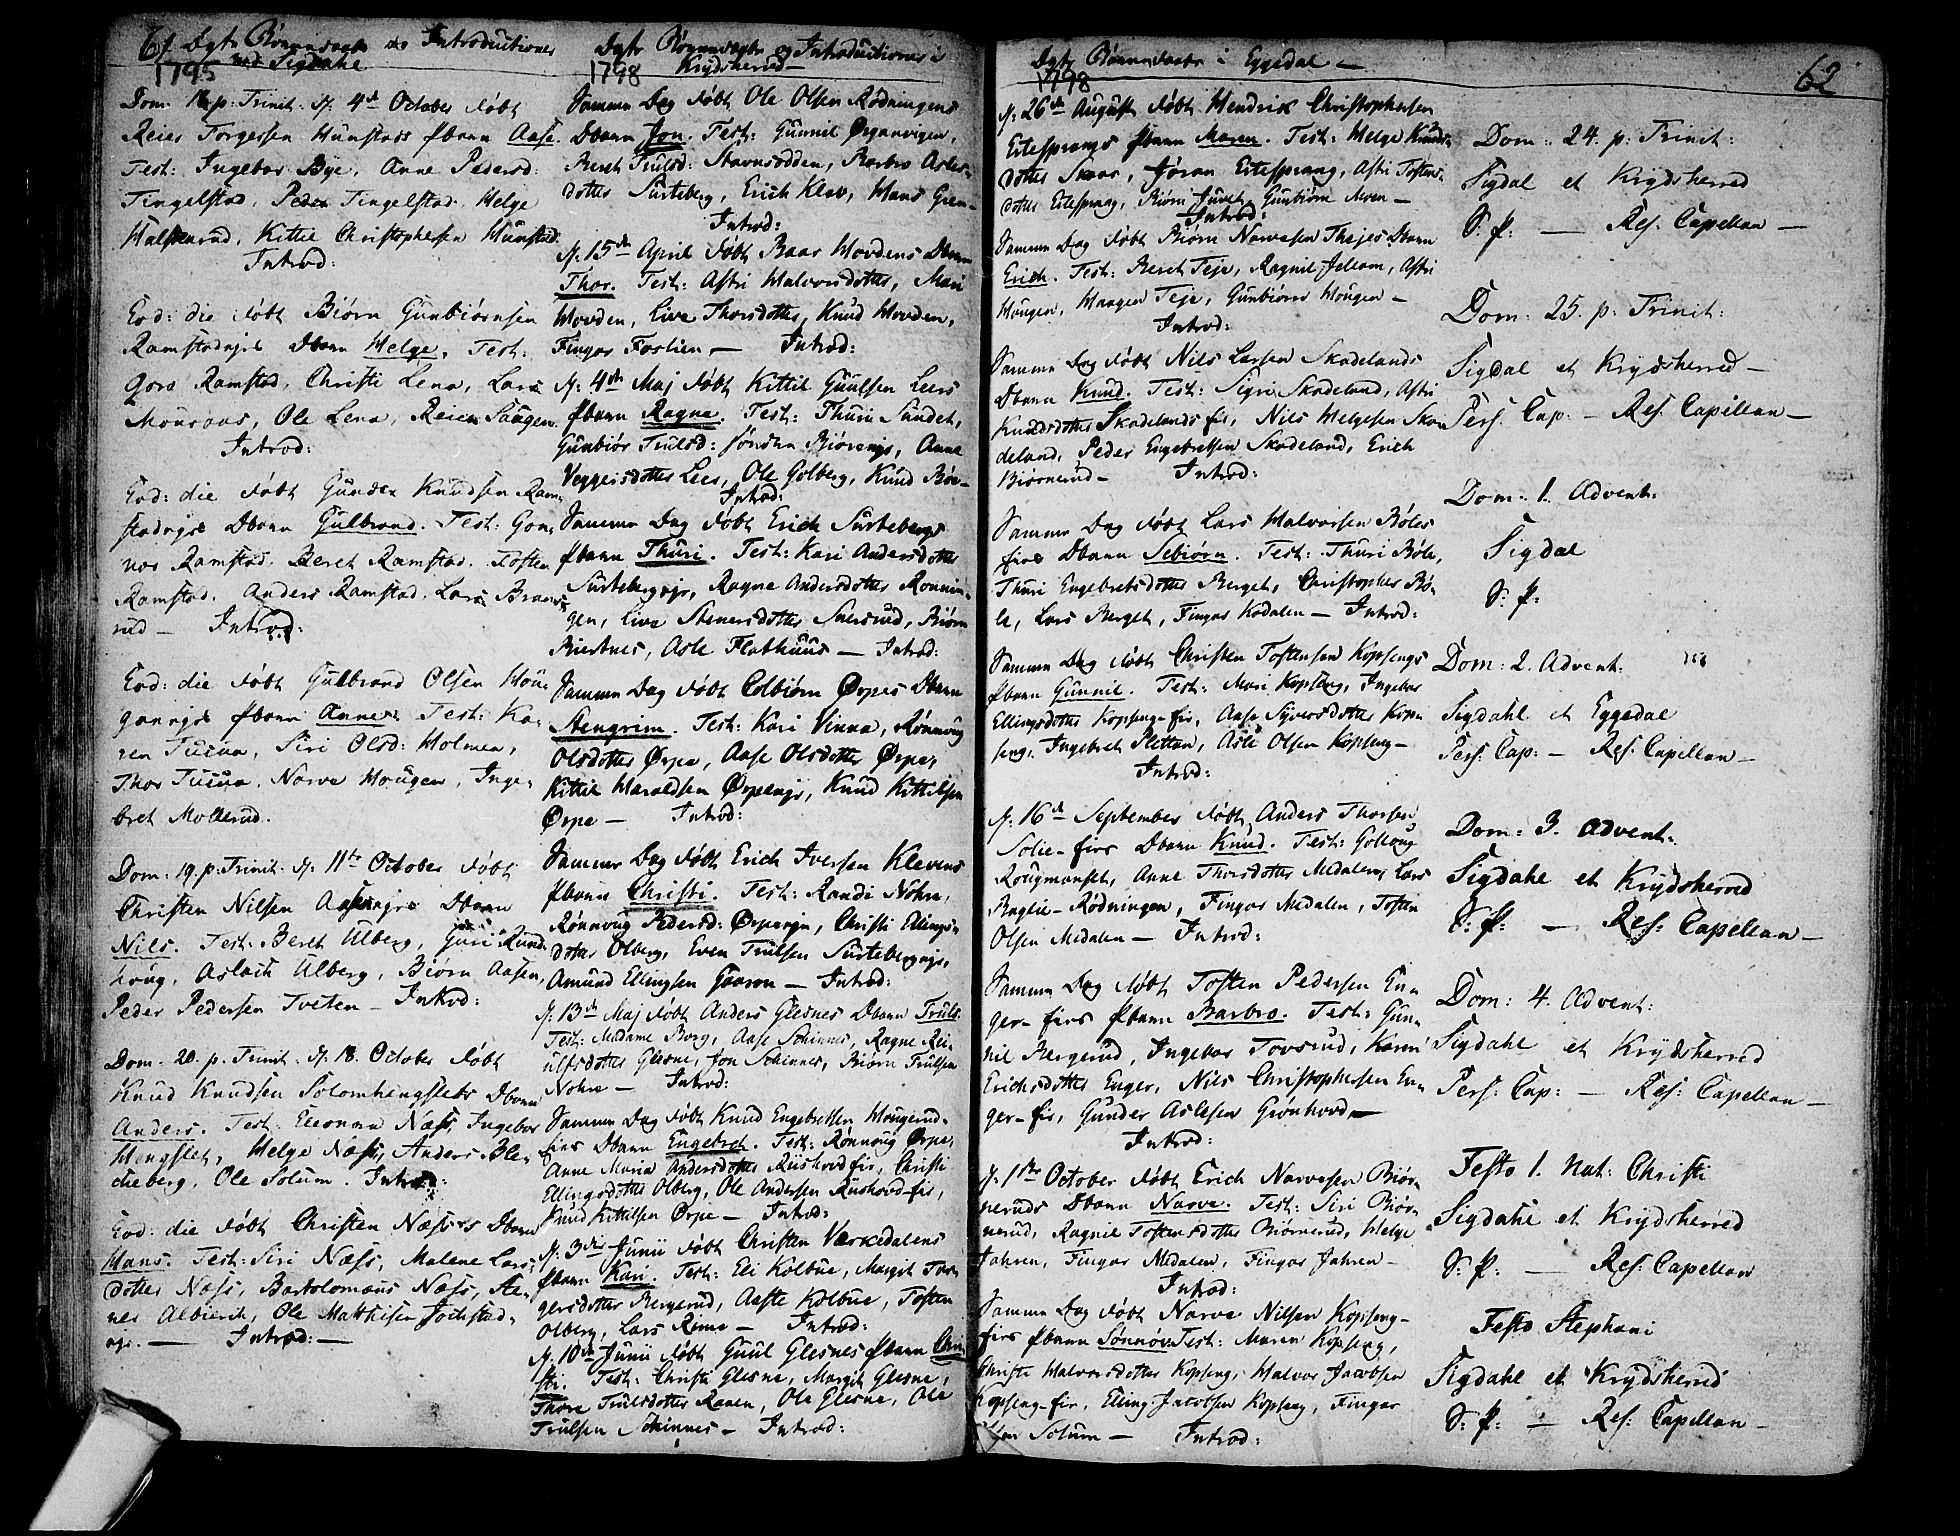 61 Dgtr Børn døbte og Introductioner
ved Sigdahl
1795
Dom: 18 p: Trinit: d: 4de October døbt
Reier Torgersen Hunstads Pbarn Aase.
Test: Ingebor Bye, Anne Pedersd:
Tingelstad, Peder Tingelstad, Helge
Halstenrud, Kittil Christophersen Hunstad.
Introd:
Eod: die døbt Biørn Gunbiørnsen
Ramstadejes Dbarn Helge. Test:
Gora Ramstad, Christi Lena, Lars
Mouraas, Ole Lena, Reier Haugen.
Introd:
Eod: die døbt Gunder Knudsen Ram-
stadejes Dbarn Gulbrand. Test: Gon-
nor Ramstad, Beret Ramstad, Tosten
Ramstad, Anders Ramstad, Lars Braas-
rud — Introd:
Eod: die døbt Gulbrand Olsen Hou-
genejes Pbarn Anne. Test: Ka-
ren Tufua, Siri Olsd: Holmen,
Thor Tufua, Narve Hougen, Inge-
bret Mollerud.
Dom: 19. p: Trinit: d: 11te October døbt
Christen Nilsen Aasenejes Dbarn
Nils. Test: Beret Ulberg, Guri Rund-
houg, Aslach Ulberg, Biørn Aasen,
Peder Pedersen Tveten — Introd:
Dom: 20. p. Trinit: d: 18. October døbt
Knud Knudsen Solomhengslets Dbarn
Anders. Test: Eleonora Næss, Ingebor
Hengslet, Helge Næss, Anders Ble-
cheberg, Ole Solum. Introd:
Eod: die døbt Christen Næsses Dbarn
Hans. Test: Siri Næss, Malene Lars-
dotter Næss, Bartolomæus Næss,
Ole Matthisen Jochstad-
eje. — Introd: —
Dgtr Børn døbte og Introductioner i
Krydsherred —
1798
Samme Dag døbt Ole Olsen Rødningens
Dbarn Jon. Test: Gunnil Ørgenvigen,
Beret Trulsd: Stavnsodden, Barbro Asles-
dotter Surteberg, Erich Klev, Hans Gren-
Introd:
d: 15de April døbt Baar Hovdens Dbarn
Thor. Test: Astri Halvorsdotter, Mari
Hovden, Live Thorsdotter, Knud Hovden,
Fingar Foslien — Introd:
d: 4de Maj døbt Kittil Guulsen Leers
Pbarn Ragne. Test: Thuri Sundet,
Gunbiør Trulsd: Biørenejs, Anne
Veggersdotter Leer, Ole Golberg, Knud Biør-
Introd:
Samme Dag døbt Erich Surtebergs
Pbarn Thuri. Test: Kari Andersdotter
Surtebergejs, Ragne Andersdotter Rønnin-
gen, Live Stenersdotter Snersrud, Biørn
Biertnes, Asle Flathuus — Introd:
Samme Dag døbt Colbiørn Ørpes Dbarn
Stengrim. Test: Kari Vinna, Rønnoug
Olsdotter Ørpe, Aase Olsdotter Ørpe,
Kittil Haraldsen Ørpenejs, Knud Kittilsen
Ørpe — Introd:
Samme Dag døbt Erich Iversen Klevens
Pbarn Christi. Test: Randi Nohre,
Rønnoug Pedersd: Ørpeeje, Christi Ellings-
dotter Olberg, Even Trulsen Surtebergejs,
Amund Ellingsen Gaaren — Introd:
d: 13de Maj døbt Anders Glesnes Dbarn Truls.
Test: Madame Borg, Aase Schinnes, Ragne Rei-
ulfsdotter Glesne, Jon Schinnes, Biørn Trulsen
Nohre — Introd:
Samme Dag døbt Knud Engebretsen Hougerud-
eies Dbarn Engebret. Test: Rønnoug Ørpe,
Anne Maria Andersdotter Ruehovdeje, Christi
Ellingsdotter Olberg, Ole Andersen Ruehovdeje,
Knud Kittilsen Ørpe — Introd:
d: 3die Junii døbt Christen Værkedalens
Pbarn Kari. Test: Eli Kolbue, Margit Tor-
gersdotter Bergerud, Aaste Kolbue, Tosten
Olberg, Lars Rime — Introd:
d: 10de Junii døbt Guul Glesnes Pbarn Chri-
sti. Test: Christi Glesne, Margit Glesne,
Thore Trulsdotter Raaen, Ole Glesne, Ole
Trulsen Schinnes — Introd:
Dgtr Børn døbte i Eggedal — 62
1798
d: 26de August døbt Hendrik Christophersen
Ertesprangs Pbarn Maren. Test: Helge Knuds-
dotter Skaar, Jøran Ertesprang, Astri Tostens-
dotter Ertesprang, Biørn Juvet, Gunbiørn Moen —
Introd:
Samme Dag døbt Biørn Narvesen Thejes Dbarn
Erich. Test: Beret Teje, Ragnil Jellom, Astri
Hougen, Haagen Teje, Gunbiørn Hougen —
Introd:
Samme Dag døbt Nils Larsen Skadelands
Dbarn Knud. Test: Sigri Skadeland, Astri
Knudsdotter Skadelandseje, Nils Helgesen Ska-
deland, Peder Engebretsen Skadeland, Erich
Biørnerud — Introd:
Samme Dag døbt Lars Halvorsen Bøles
eies Dbarn Sebiørn. Test: Thuri Bøle,
Thuri Engebretsdotter Berget, Christopher Bø-
le, Lars Berget, Fingar Kodalen — Introd:
Samme Dag døbt Christen Tostensen Kopsengs
Pbarn Gunnil. Test: Mari Kopseng, Ingebor
Ellingsdotter Kopseng-eje, Aase Syversdotter Kop-
seng, Ingebreth Pletten, Asle Olsen Kopseng —
Introd:
d: 16de September døbt Anders Thorsen
Solie-eies Dbarn Knud. Test: Golloug
Rougmanset, Anne Thorsdotter Medalen, Lars
Baglie-Rødningen, Fingar Medalen, Tosten
Olsen Medalen — Introd:
Samme Dag døbt Tosten Pedersen En-
ger-eies Pbarn Barbro. Test: Gun-
nil Bergerud, Ingebor Tovsrud, Karen
Erichsdotter Enger, Nils Christophersen En-
ger-eje, Gunder Aslesen Grønhovd —
Introd:
d: 1ste October døbt Erich Narvesen Biør-
neruds Dbarn Narve. Test: Siri Biør-
nerud, Ragnil Tostensdotter Biørnerud, Helge
Jahren, Fingar Medalen, Fingar Jahren —
Introd:
Samme Dag døbt Narve Nilsen Kopseng-
eies Pbarn Sønnøv. Test: Maren Kopseng,
Christi Halvorsdotter Kopseng, Halvor Jacobsen
Kopseng-eje, Elling Jacobsen Kopseng, Fingar
Olsen Solum — Introd:
Dom: 24. p: Trinit:
Sigdal et Krydsherred
S: P: — Res: Capellan —
Dom: 25. p: Trinit:
Sigdal et Krydsherred —
Pers: Cap: — Res: Capellan —
Dom: 1. Advent:
Sigdal
S: P:
Dom: 2. Advent:
Sigdahl et Eggedal
Pers: Cap: — Res: Capellan —
Dom: 3. Advent:
Sigdahl et Krydsherred
S: P: — Res: Capellan —
Dom: 4. Advent:
Sigdahl et Krydsherred
Pers: Cap: — Res: Capellan —
Festo 1. Nat: Christi
Sigdahl et Krydsherred
S: P: — Res: Capellan
Festo Stephani
Sigdahl et Krydsherred
S: P: — Res: Capellan —